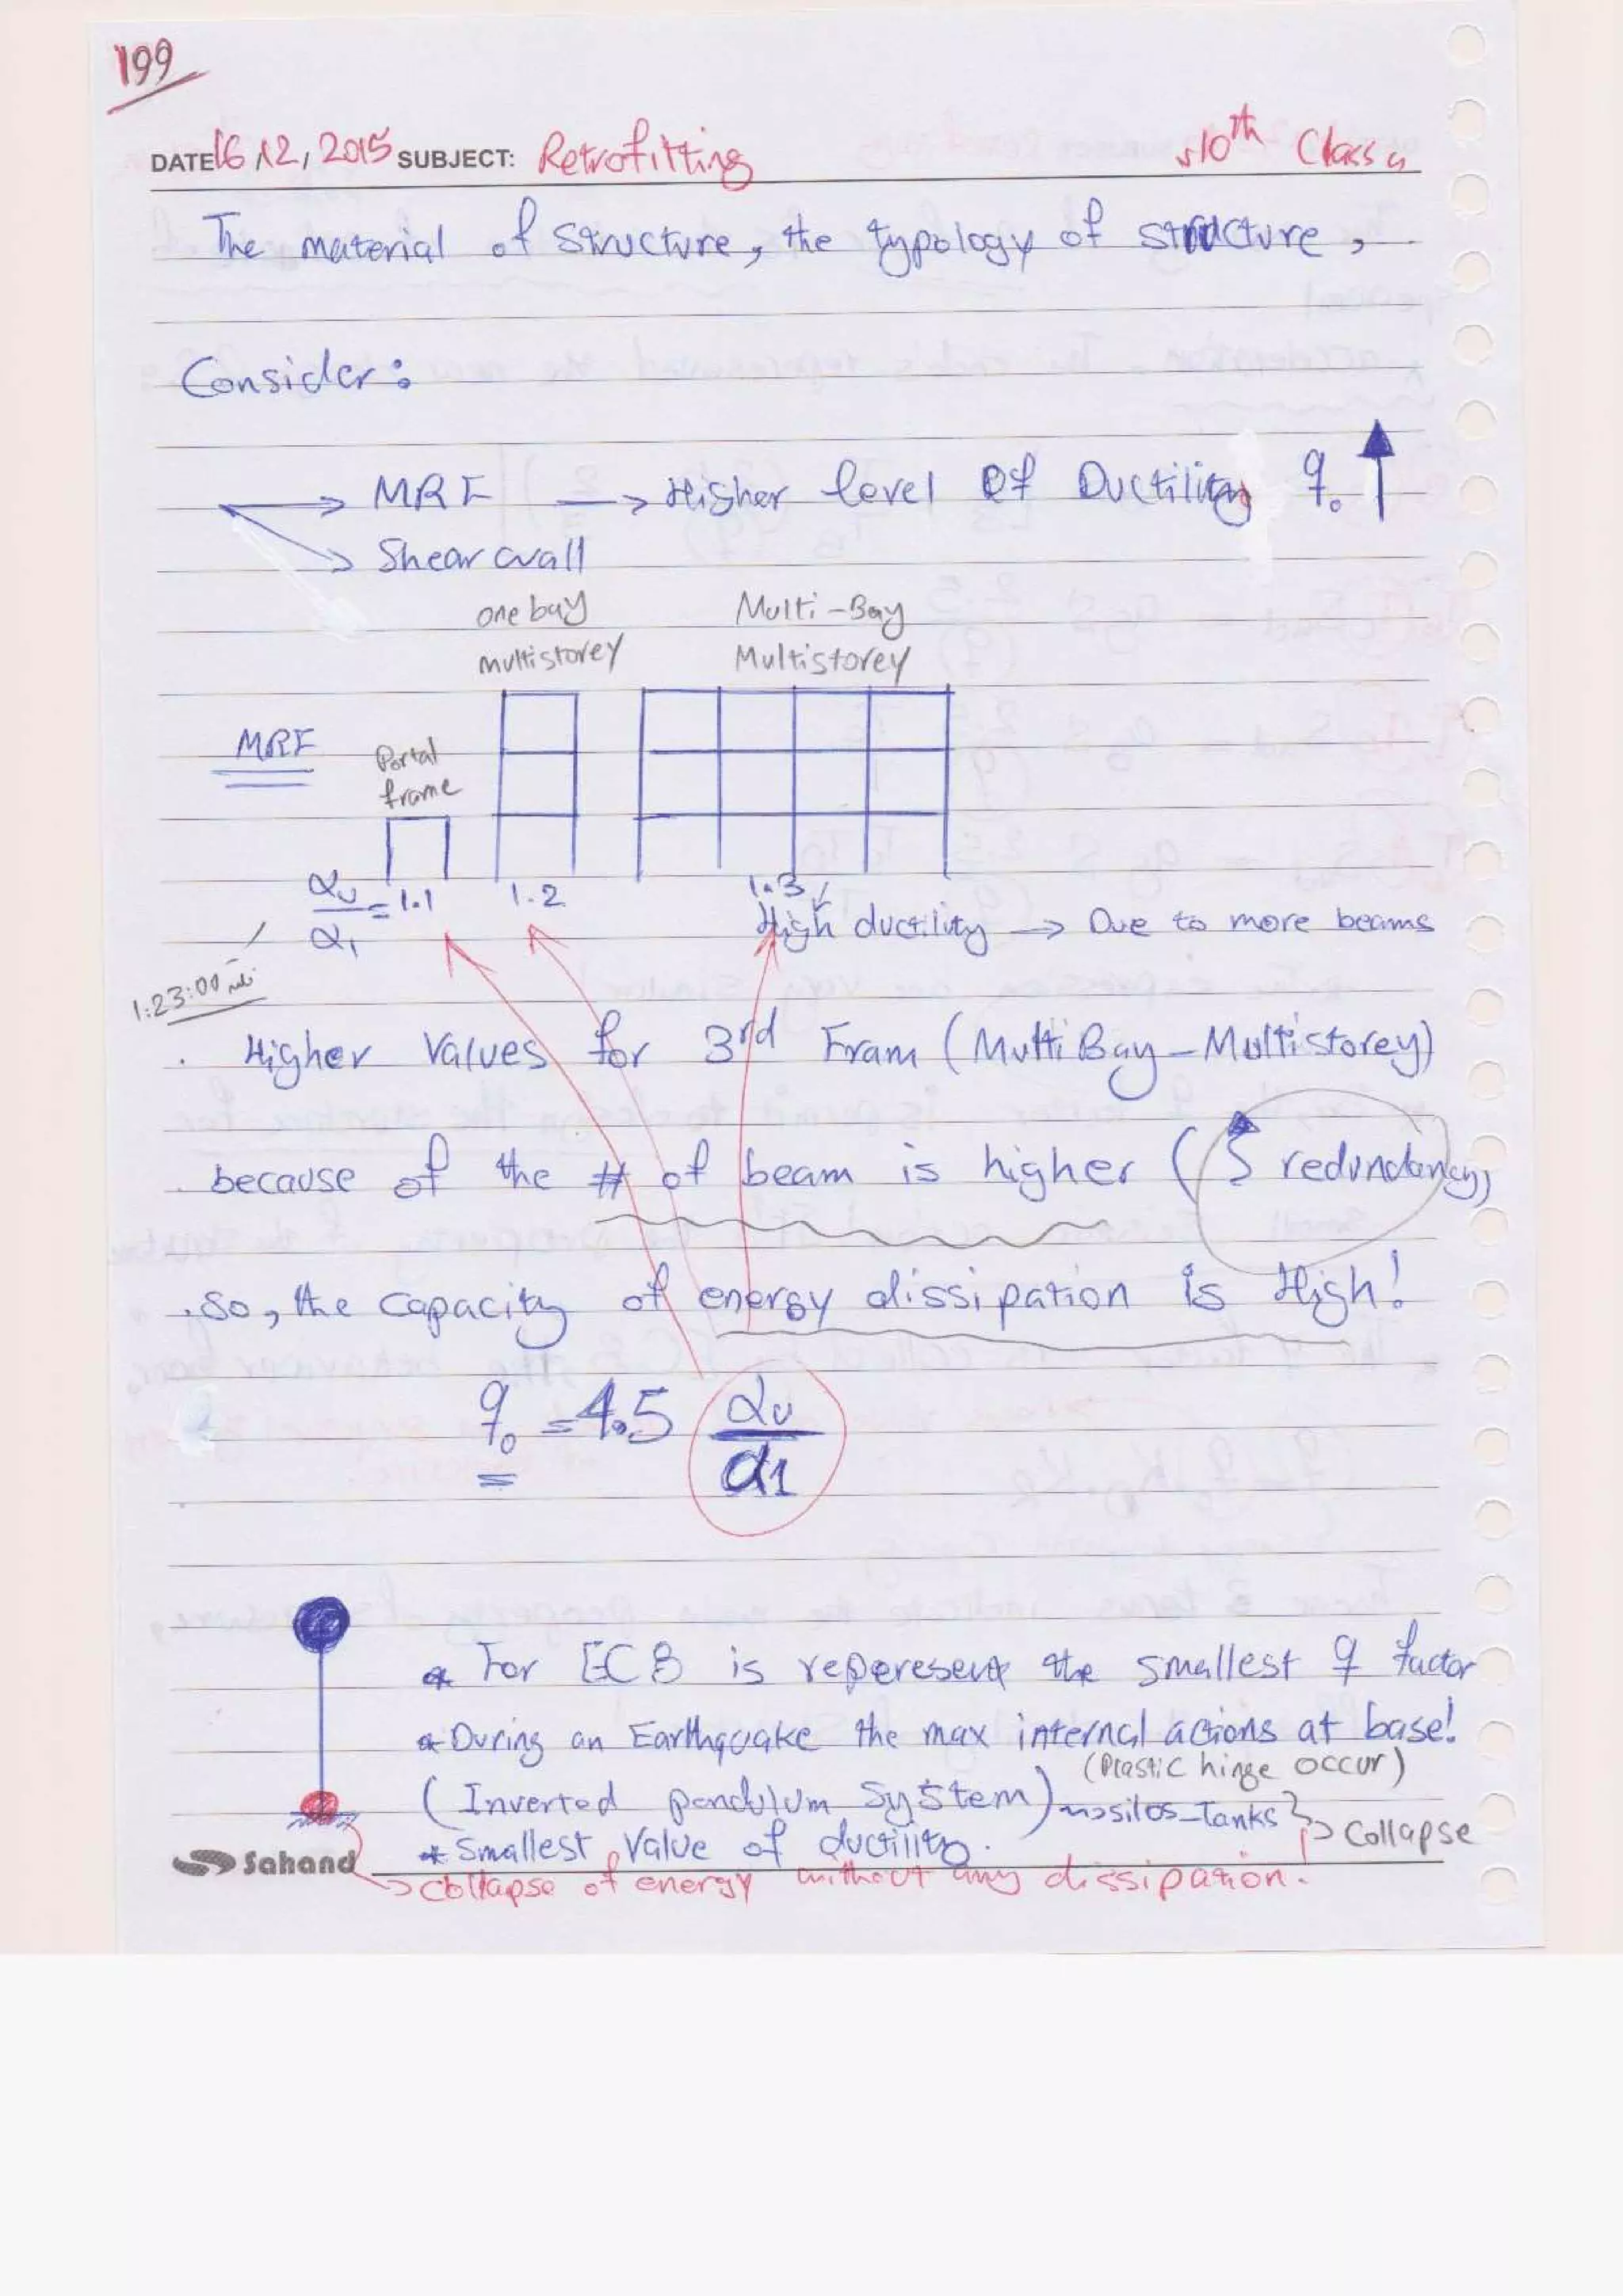 199
DATE 16/12/2015 SUBJECT: Retrofitting 10th Class
The material of structure, the typology of structure,
Consider:
MRF → Higher level Of Ductility q₀ ↑
Shear wall
one bay Multi-Bay
multistorey Multistorey
MRF Portal
frame
αu/α1 = 1.1 1.2 1.3
High ductility → Due to more beams
1:23:00
Higher Values for 3rd Fram (Multi Bay-Multistorey)
because of the # of beam is higher ( redundancy)
. So, the capacity of energy dissipation is High!
q₀ = 4.5 αu/α1
* For EC8 is reperesent the smallest q factor
* During an Earthquake the max internal actions at base!
(Plastic hinge occur)
(Inverted pendulum system) silos-Tanks } → Collapse
* Smallest Value of ductility.
Sahand
→ Collapse of energy without any dissipation.